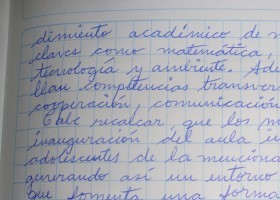 dimiento académico de
claves como matemática,
tecnología y ambiente.
llan competencias transver
cooperación, comunicación
Cabe recalcar que los m
inauguración del aula i
adolescentes de la menciona
generando así un entorno
que fomenta una forma